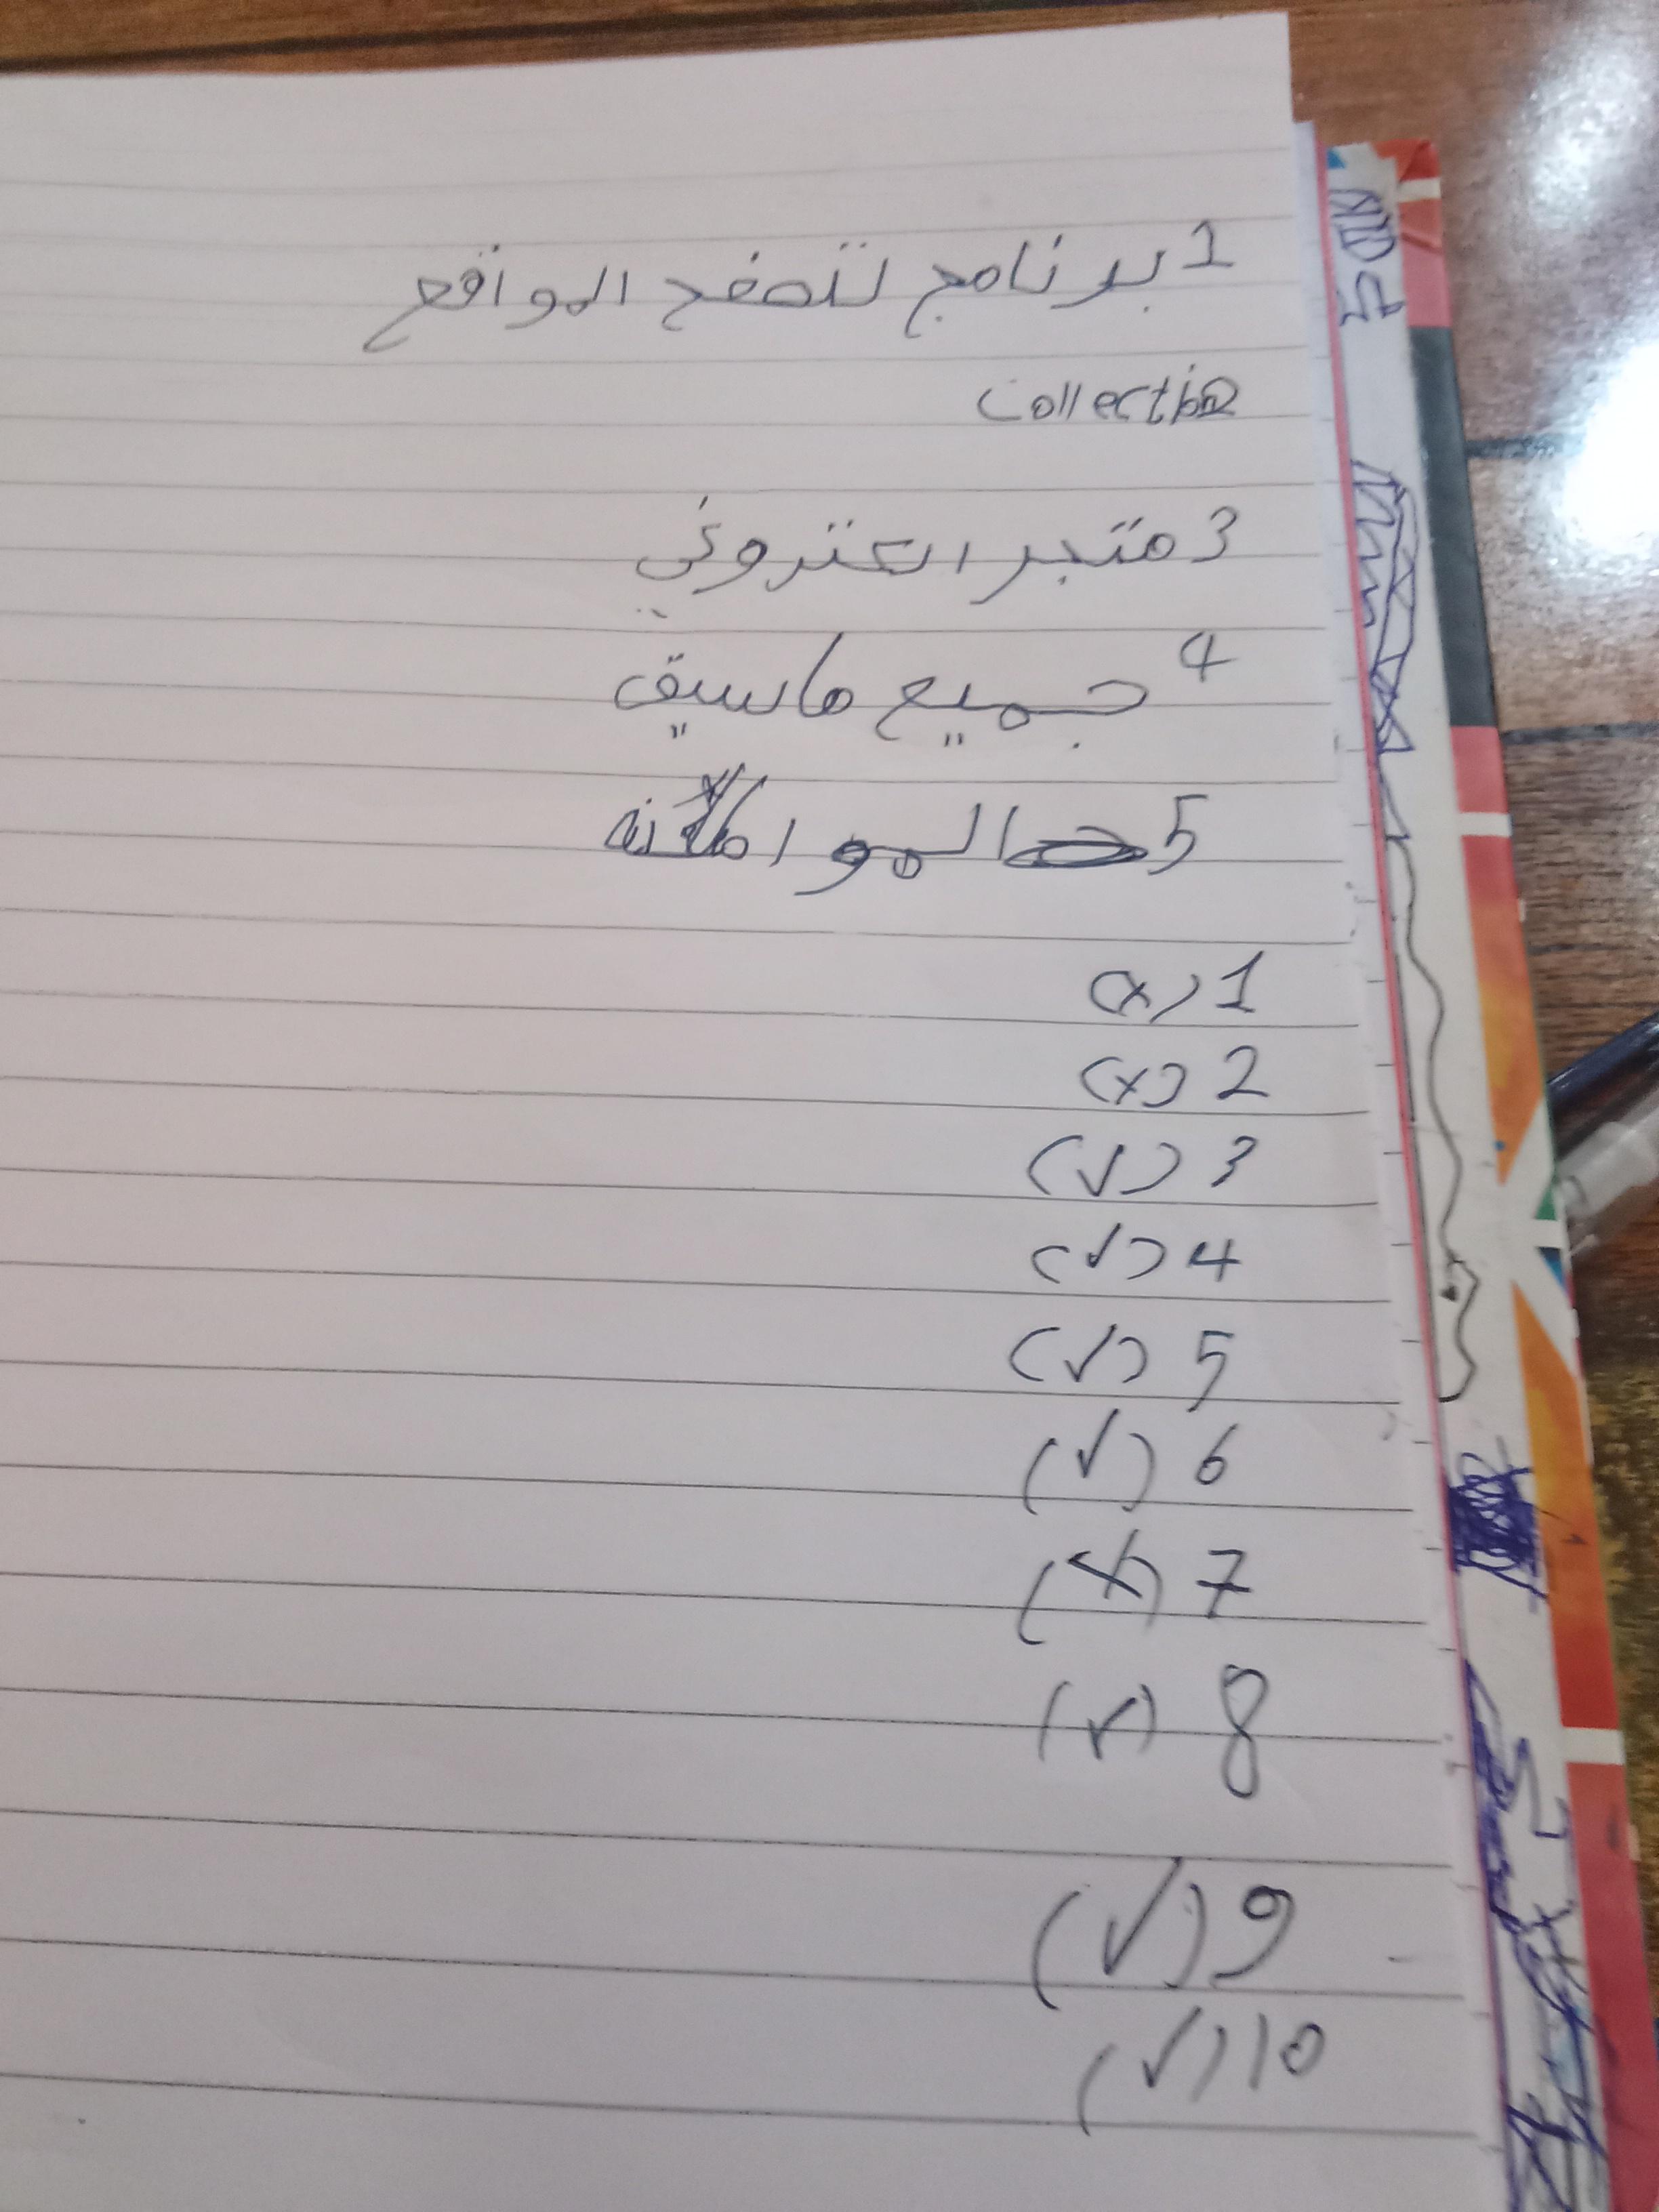 1 برنامج لتصفح المواقع
Collection
3 متجر الكتروني
4 جميع ماسبق
5
1 (x)
2 (x)
3 (✓)
4 (✓)
5 (✓)
6 (✓)
7 (x)
8 (✓)
9 (✓)
10 (✓)